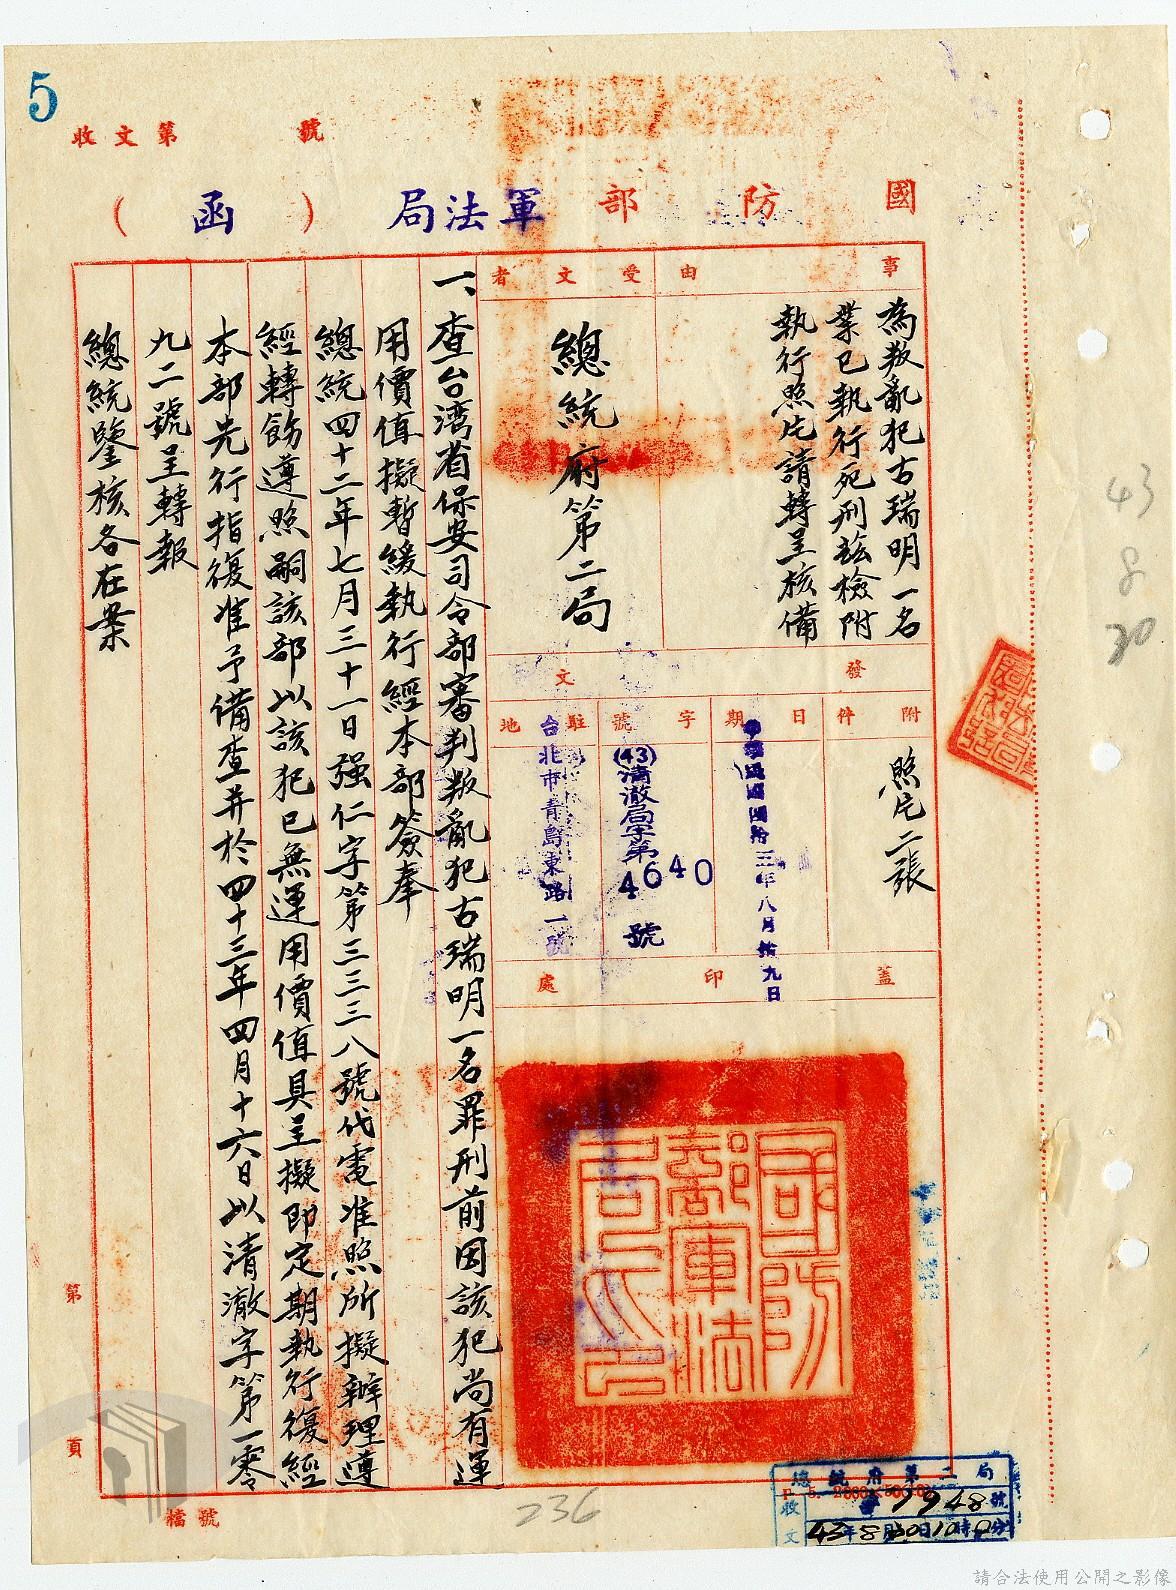 5
收文第　　號
國防部軍法局（函）
事由
為叛亂犯古瑞明一名
業已執行死刑茲檢附
執行照片請轉呈核備
受文者
總統府第二局
附件
照片二張
發文
日期
中華民國四拾三年八月拾九日
字號
(43)清澈局字第4640號
駐地
台北市青島東路一號
蓋印處
國防部軍法局印
一、查台湾省保安司令部審判叛亂犯古瑞明一名罪刑前因該犯尚有運
用價值擬暫緩執行經本部簽奉
總統四十二年七月三十一日强仁字第三三三八號代電准照所擬辦理遵
經轉飭遵照嗣該部以該犯已無運用價值具呈擬即定期執行復經
本部先行指復准予備查并於四十三年四月十六日以清澈字第一零
九二號呈轉報
總統鑒核各在案
第　頁
檔號
236
43
8
20
總統府第二局
收文
字1948號
43年8月20日10時0分
請合法使用公開之影像